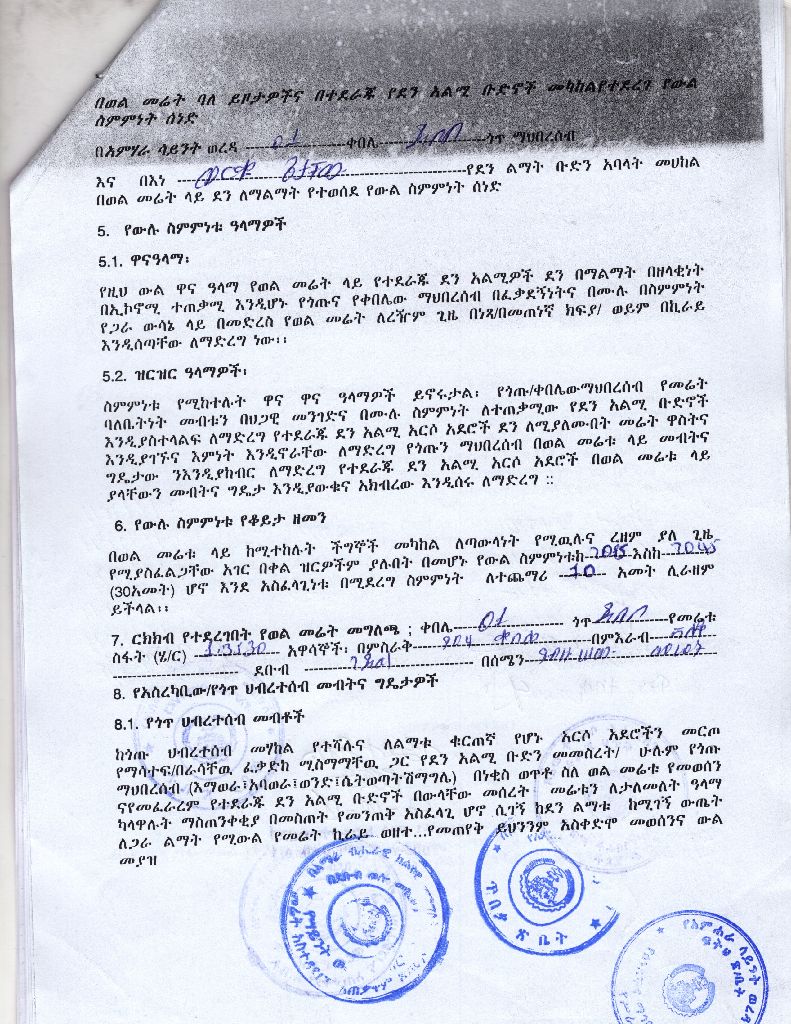 በወል መሬት ባለ ይዞታዎችና በተደራጁ የደን አልሚ ቡድኖች መካከልየተደረገ የውል
ስምምነት ሰነድ
በአምሃራ ሳይንት ወረዳ 01 ቀበሌ ጎጥ ማህበረሰብ
እና በእነ የደን ልማት ቡድን አባላት መሀከል
በወል መሬት ላይ ደን ለማልማት የተወሰደ የውል ስምምነት ሰነድ
5. የውሉ ስምምነቱ ዓላማዎች
5.1. ዋናዓላማ፡
የዚህ ውል ዋና ዓላማ የወል መሬት ላይ የተደራጁ ደን አልሚዎች ደን በማልማት በዘላቂነት
በኢኮኖሚ ተጠቃሚ እንዲሆኑ የጎጡና የቀበሌው ማህበረሰብ በፈቃደኝነትና በሙሉ በስምምነት
የጋራ ውሳኔ ላይ በመድረስ የወል መሬት ለረዥም ጊዜ በነጻ/በመጠነኛ ክፍያ/ ወይም በኪራይ
እንዲሰጣቸው ለማድረግ ነው፡፡
5.2. ዝርዝር ዓላማዎች፡
ስምምነቱ የሚከተሉት ዋና ዋና ዓላማዎች ይኖሩታል፡ የጎጡ/ቀበሌውማህበረሰብ የመሬት
ባለቤትነት መብቱን በህጋዊ መንገድና በሙሉ ስምምነት ለተጠቃሚው የደን አልሚ ቡድኖች
እንዲያስተላልፍ ለማድረግ የተደራጁ ደን አልሚ አርሶ አደሮች ደን ለሚያለሙበት መሬት ዋስትና
እንዲያገኙና እምነት እንዲኖራቸው ለማድረግ የጎጡን ማህበረሰብ በወል መሬቱ ላይ መብትና
ግዴታው ንእንዲያከብር ለማድረግ የተደራጁ ደን አልሚ አርሶ አደሮች በወል መሬቱ ላይ
ያላቸውን መብትና ግዴታ እንዲያውቁና አክብረው እንዲሰሩ ለማድረግ ::
6. የውሉ ስምምነቱ የቆይታ ዘመን
በወል መሬቱ ላይ ከሚተከሉት ችግኞች መካከል ለጣውላነት የሚዉሉና ረዘም ያለ ጊዜ
የሚያስፈልጋቸው አገር በቀል ዝርዎችም ያሉበት በመሆኑ የውል ስምምነቱከ 2015 እስከ 2045
(30አመት) ሆኖ እንደ አስፈላጊነቱ በሚደረግ ስምምነት ለተጨማሪ 10 አመት ሊራዘም
ይችላል፡፡
7. ርክክብ የተደረገበት የወል መሬት መግለጫ ; ቀበሌ 01 ጎጥ የመሬቱ
ስፋት (ሄ/ር) 1.3530 አዋሳኞች፡ በምስራቅ በምእራብ
ደቡብ በሰሜን
8. የአስረካቢው/የጎጥ ህብረተሰብ መብትና ግዴታዎች
8.1. የጎጥ ህብረተሰብ መብቶች
ከጎጡ ህብረተሰብ መሃከል የተሻሉና ለልማቱ ቁርጠኛ የሆኑ አርሶ አደሮችን መርጦ
የማሳተፍ/በራሳቸዉ ፈቃድከ ሚስማማቸዉ ጋር የደን አልሚ ቡድን መመስረት/ ሁሉም የጎጡ
ማህበረሰብ (እማወራ፣አባወራ፣ወንድ፣ሴትወጣትሽማግሌ) በነቂስ ወጥቶ ስለ ወል መሬቱ የመወሰን
ናየመፈራረም የተደራጁ ደን አልሚ ቡድኖች በውላቸው መሰረት መሬቱን ለታለመለት ዓላማ
ካላዋሉት ማስጠንቀቂያ በመስጠት የመንጠቅ አስፈላጊ ሆኖ ሲገኝ ከደን ልማቱ ከሚገኝ ውጤት
ለጋራ ልማት የሚውል የመሬት ኪራይ ወዘተ...የመጠየቅ ይህንንም አስቀድሞ መወሰንና ውል
መያዝ
ጥበቃ ጽ ቤት
የአምሐራ ሳይንት ወረዳ